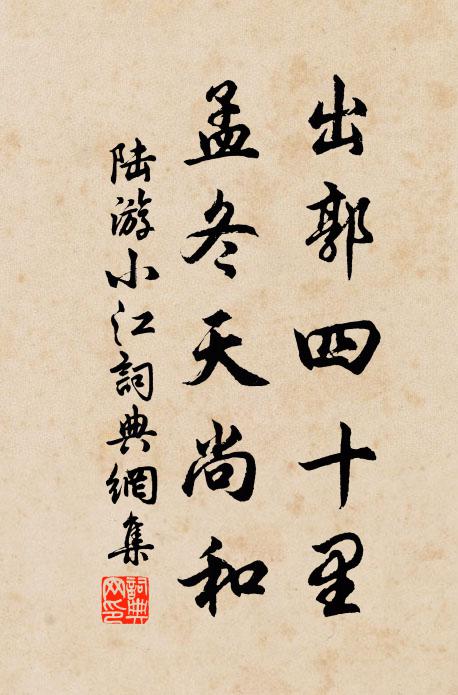 出郭四十里
孟冬天尚和
陆游小江詞典網集
詞典网印